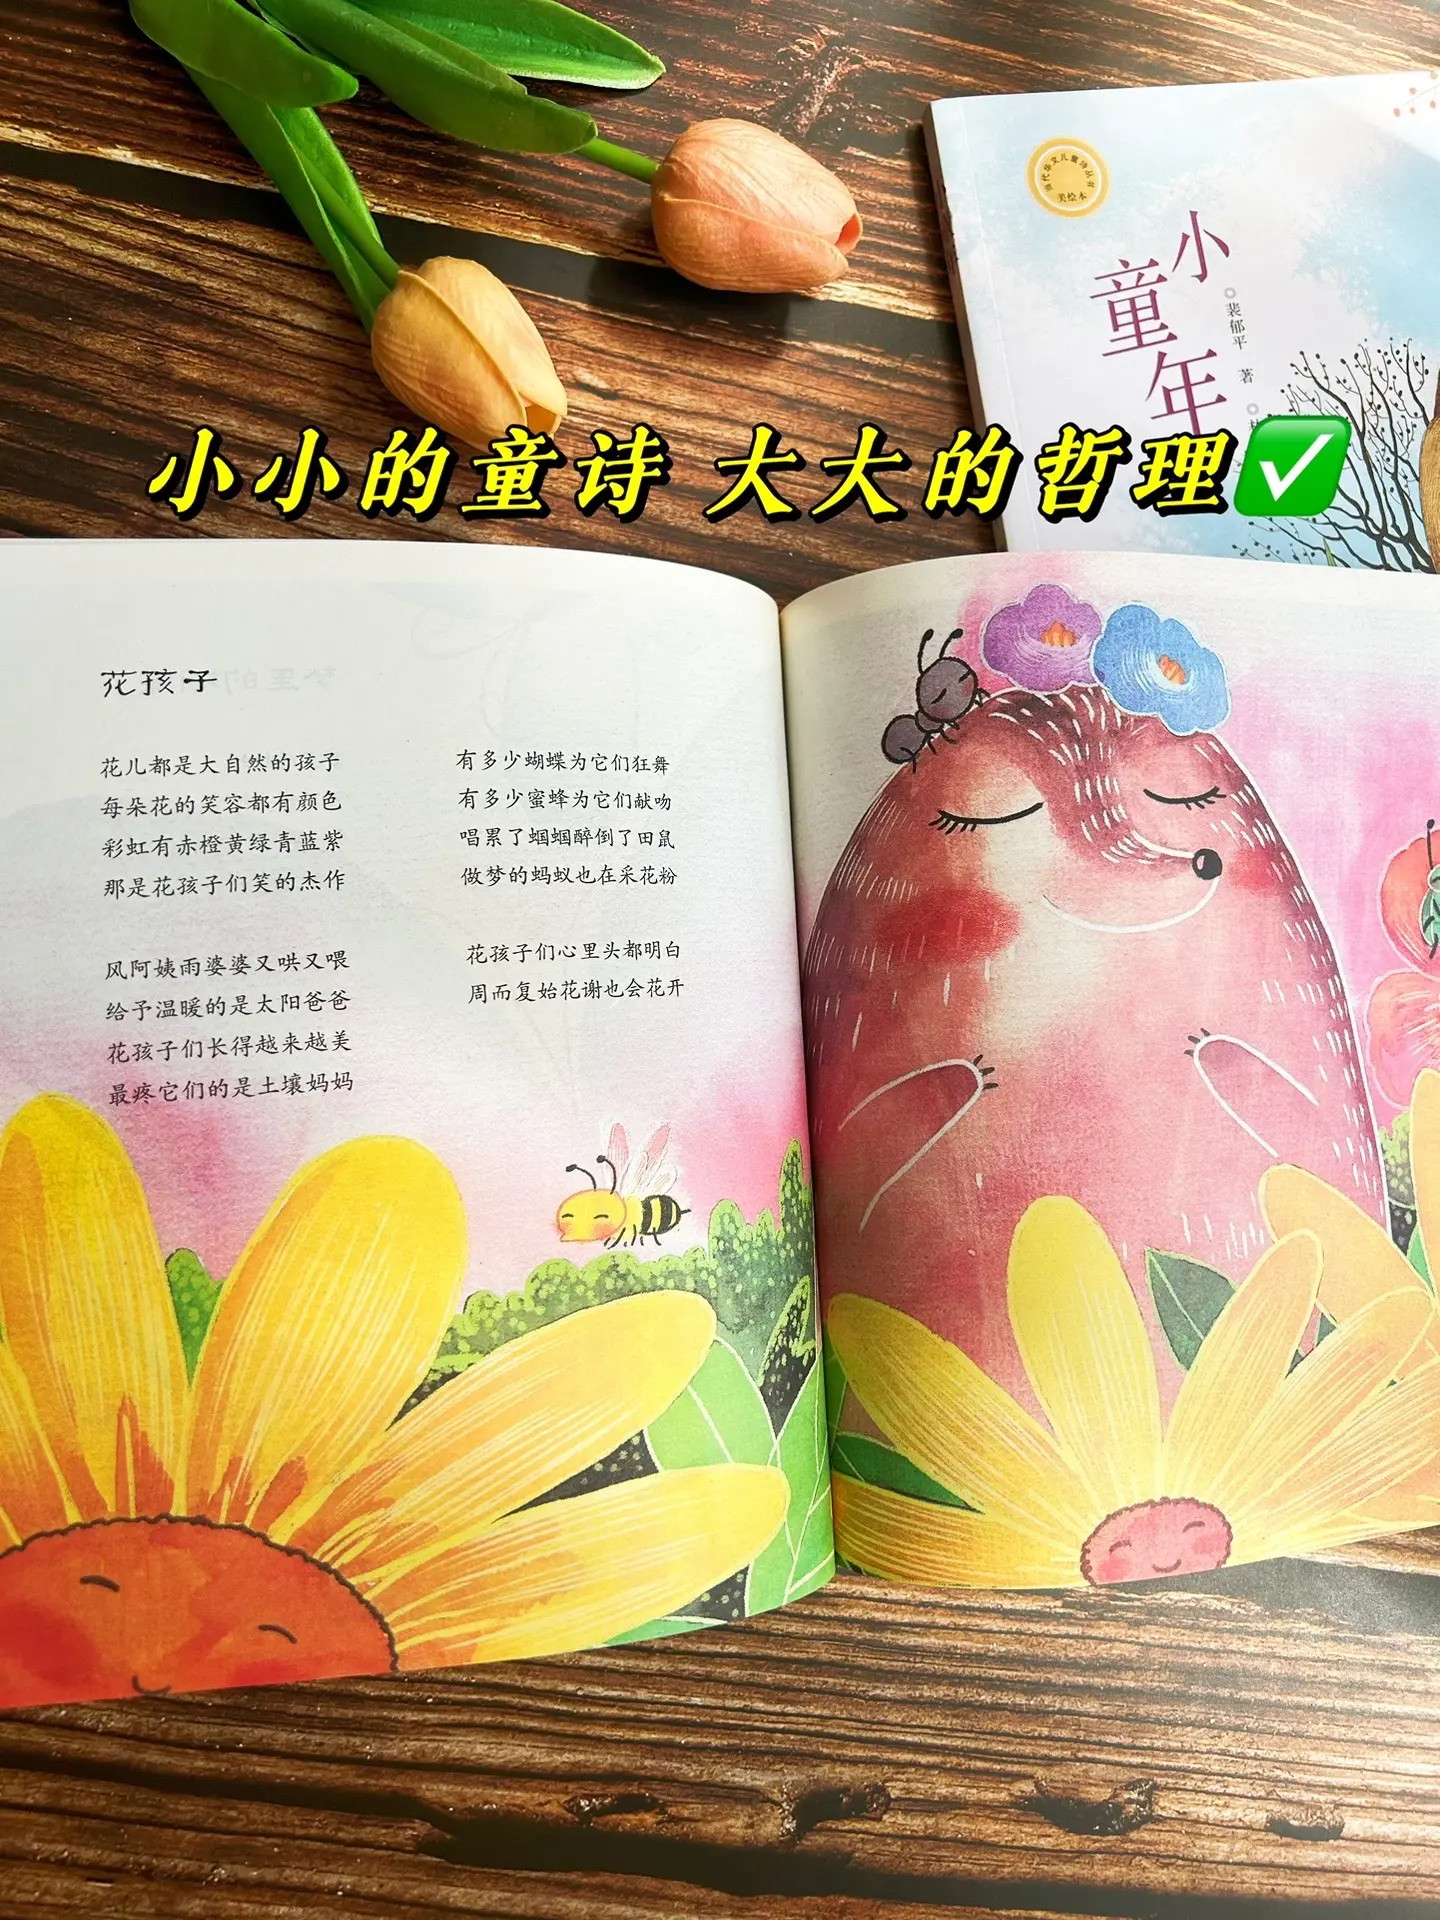 当代华文儿童诗丛书
美绘本
小童年
裴郁平 著
小小的童诗 大大的哲理
花孩子
花儿都是大自然的孩子
每朵花的笑容都有颜色
彩虹有赤橙黄绿青蓝紫
那是花孩子们笑的杰作
风阿姨雨婆婆又哄又喂
给予温暖的是太阳爸爸
花孩子们长得越来越美
最疼它们的是土壤妈妈
有多少蝴蝶为它们狂舞
有多少蜜蜂为它们献吻
唱累了蝈蝈醉倒了田鼠
做梦的蚂蚁也在采花粉
花孩子们心里头都明白
周而复始花谢也会花开